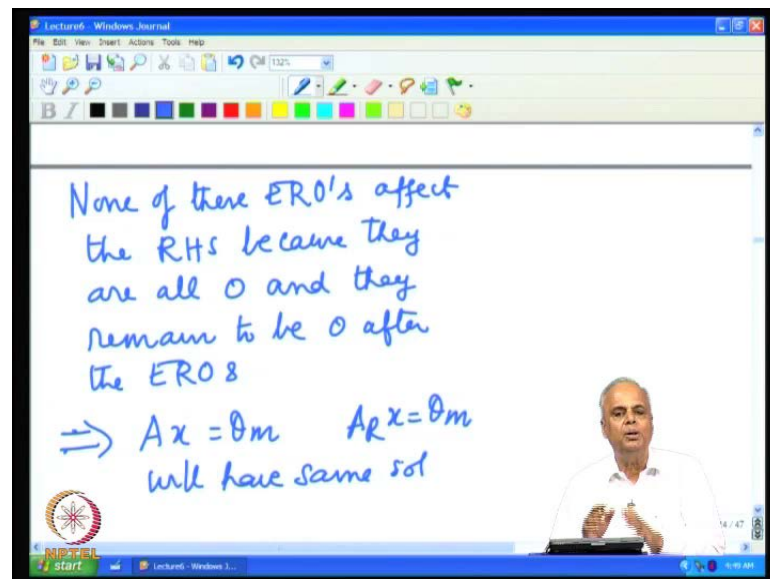 Lecture6 - Windows Journal
File Edit View Insert Actions Tools Help
132%
B I
None of these ERO's affect
the RHS because they
are all 0 and they
remain to be 0 after
the EROs
⇒ Ax = θm   A_R x = θm
will have same sol
4 / 47
NPTEL
start
Lecture6 - Windows J...
4:49 AM